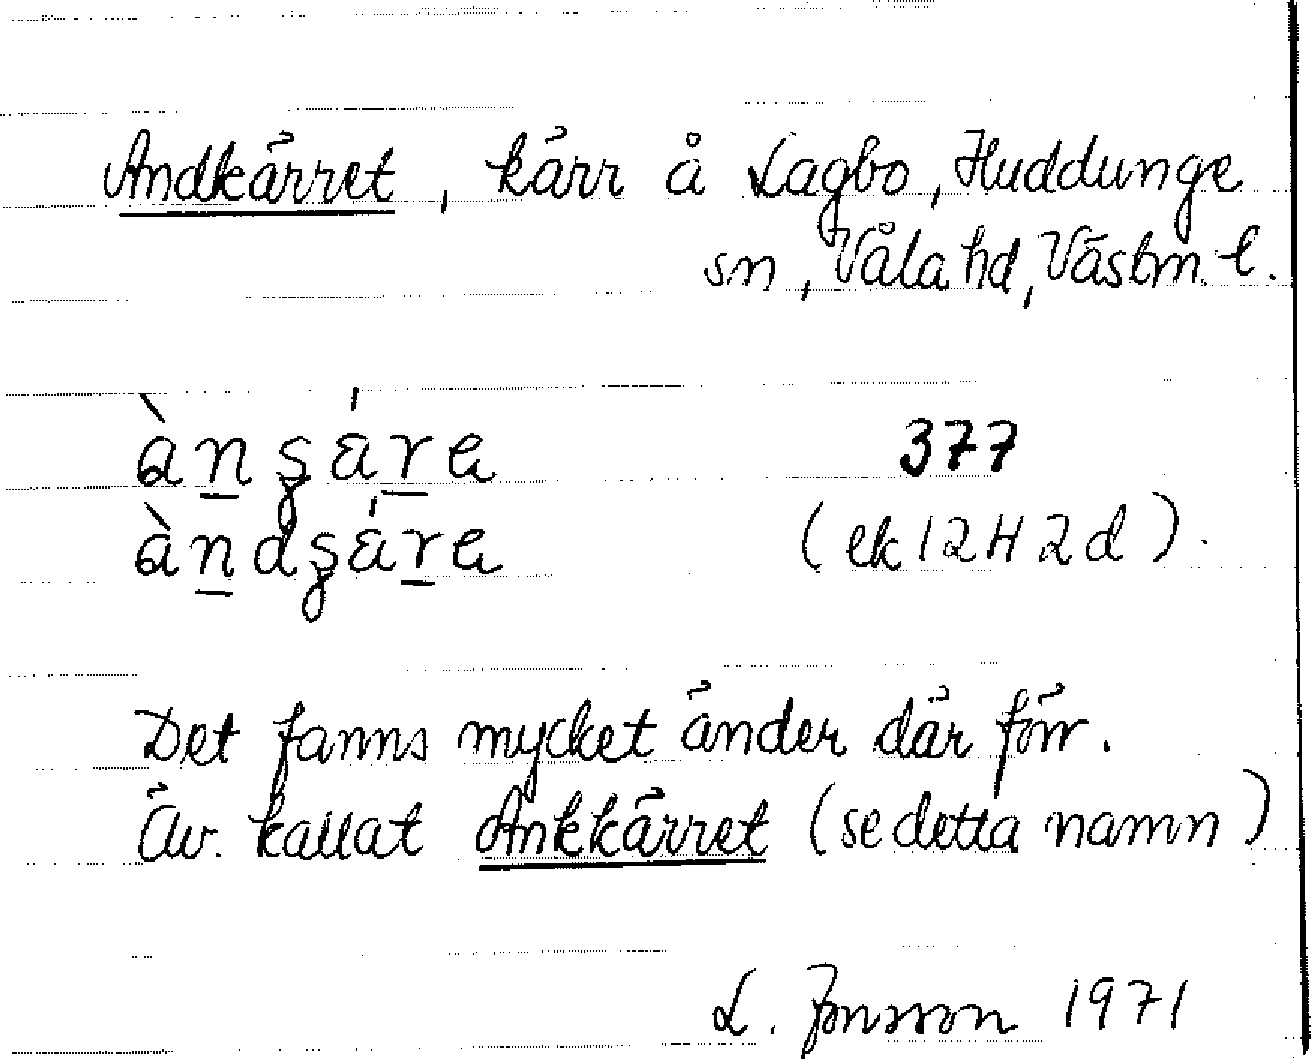 Andkärret, kärr å Lagbo, Huddunge
sn, Våla hd, Västm. l.
377
(ek 12H2d).
Det fanns mycket änder där förr.
Äv. kallat Ankkärret (se detta namn)
L. Jonsson 1971